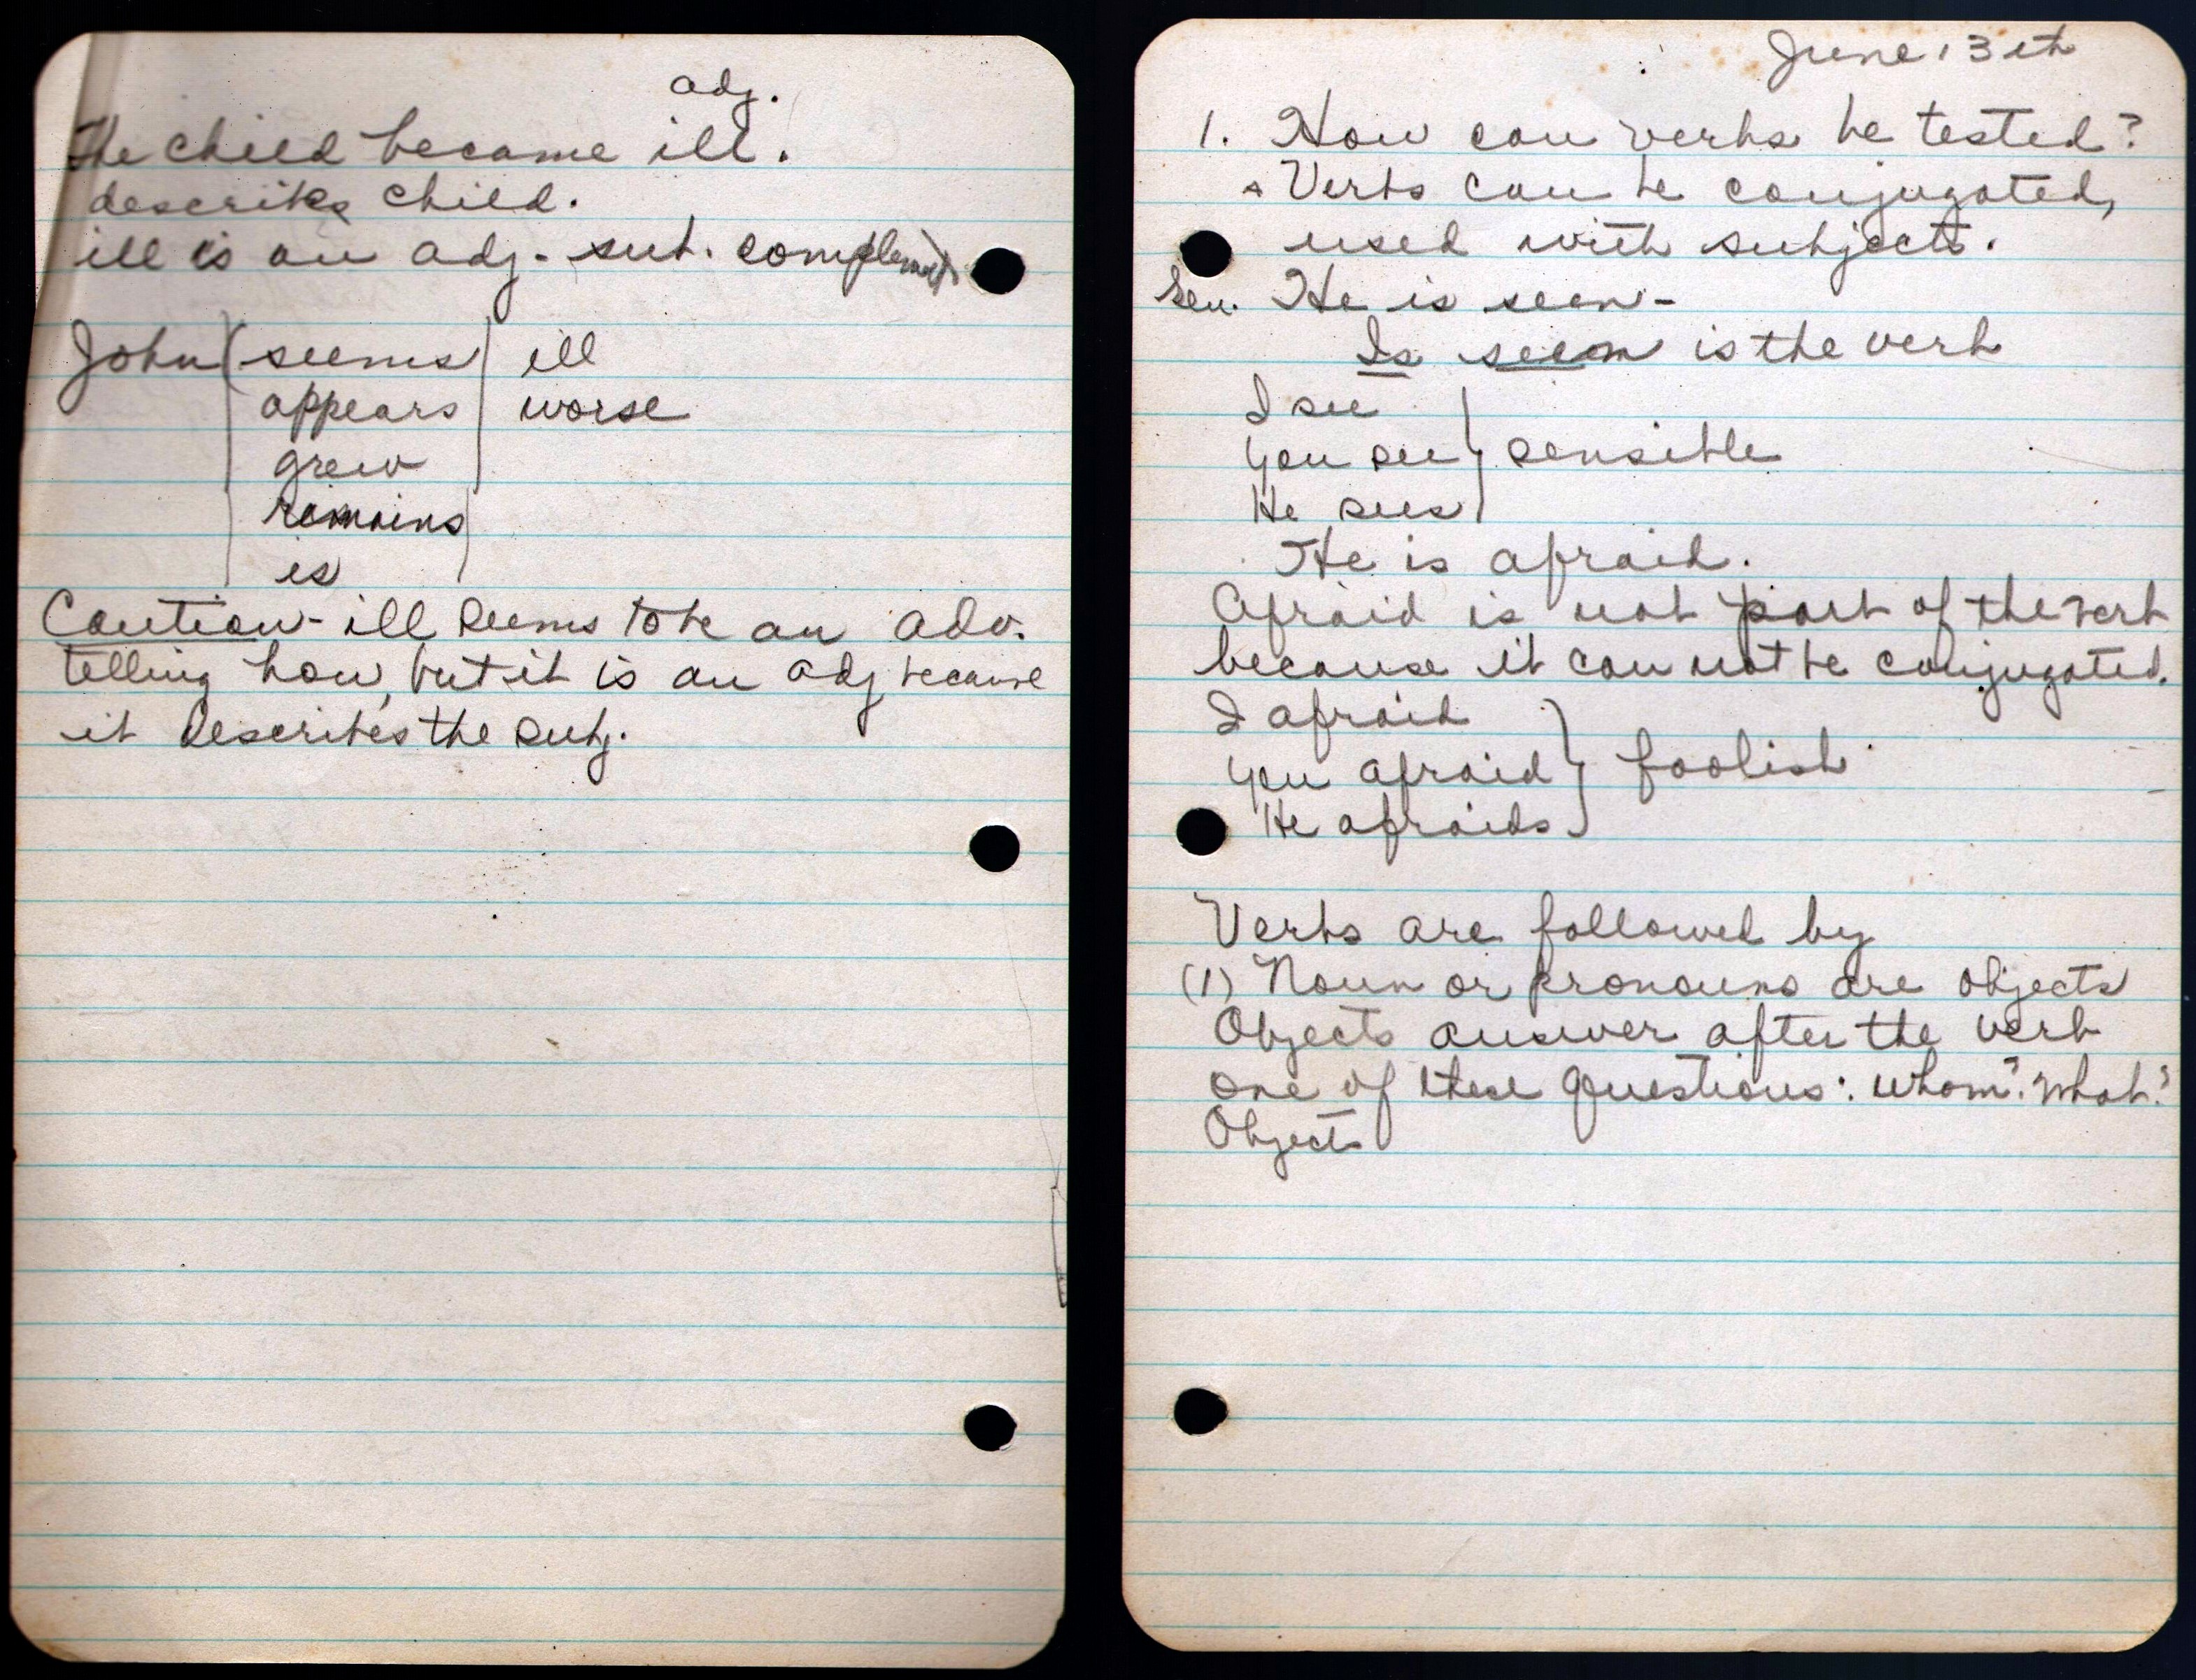 adj.
The child became ill.
describes child.
ill is an adj. sub. complement
John seems ill
appears worse
grew
remains
is
Caution - ill seems to be an adv.
telling how, but it is an adj because
it describes the subj.
June 13th
1. How can verbs be tested?
Verbs can be conjugated,
used with subjects.
Sen. He is seen -
Is seen is the verb
I see
You see } sensible
He sees
He is afraid.
Afraid is not part of the verb
because it can not be conjugated.
I afraid
You afraid } foolish
He afraids
Verbs are followed by
(1) Noun or pronouns are objects
Objects answer after the verb
one of these questions: whom? what?
Objects